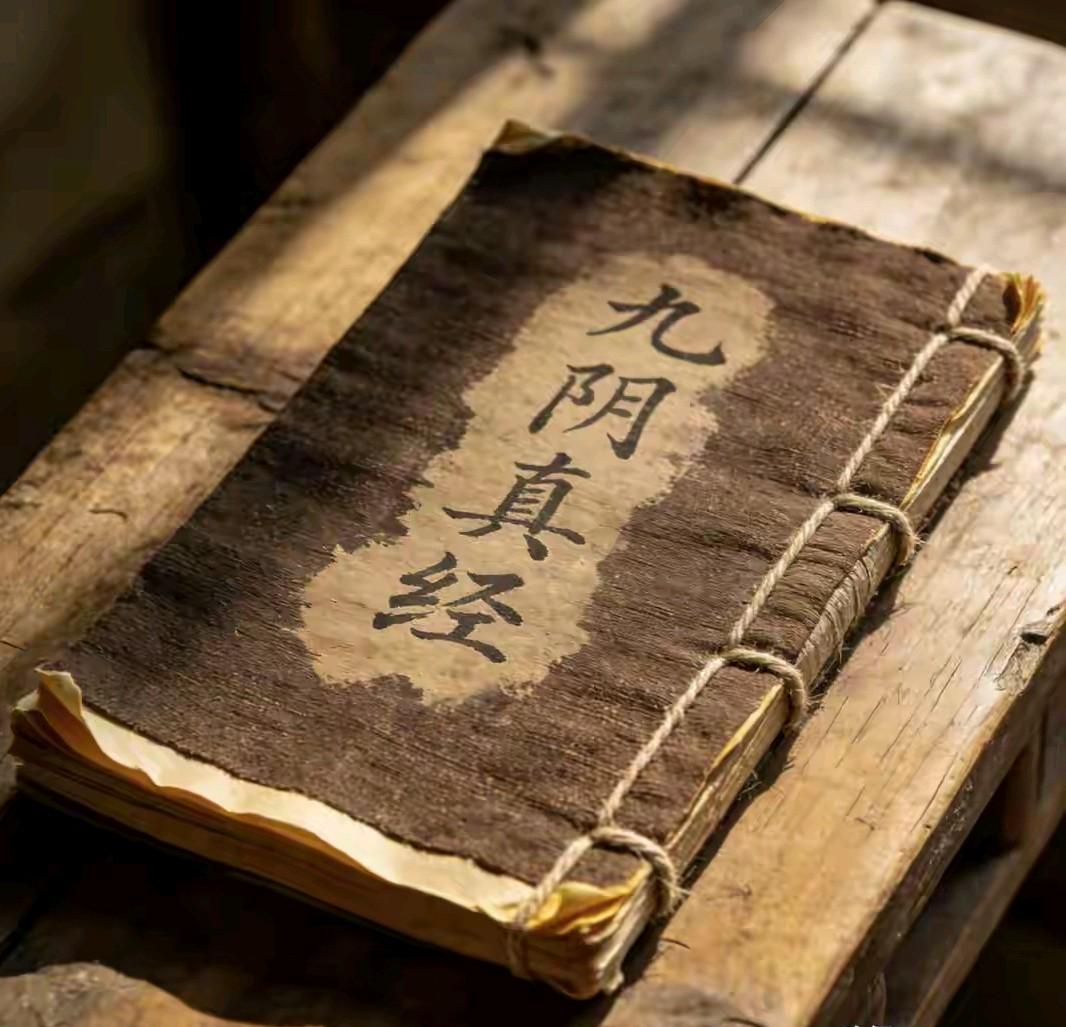 九阴真经